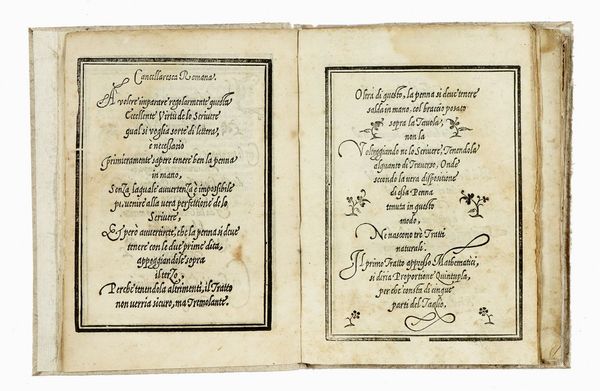 Cancellaresca Romana.
A volere imparare regolarmente questa
Eccellente Virtù de lo Scrivere
qual si voglia sorte di lettera,
è necessario
primieramente sapere tenere ben la penna
in mano,
Senza laquale avvertenza è impossibile
pervenire alla vera perfettione de lo
Scrivere,
Et però avvertirete, che la penna si deve
tenere con le due prime dita,
appoggiandole sopra
il terzo,
Perchè tenendola altrimenti, il Tratto
non verria sicuro, ma Tremolante.
Oltra di questo, la penna si deve tenere
salda in mano, col braccio posato
sopra la Tavola,
non la
Volteggiando ne lo Scrivere, Tenendola
alquanto di Traverso, Onde
secondo la vera dispositione
di essa Penna
tenuta in questo
modo,
Ne nascono trè Tratti
naturali.
Il primo Tratto appresso Mathematici,
si diria Proportione Quintupla,
perche consta di cinque
parti del Taglio,